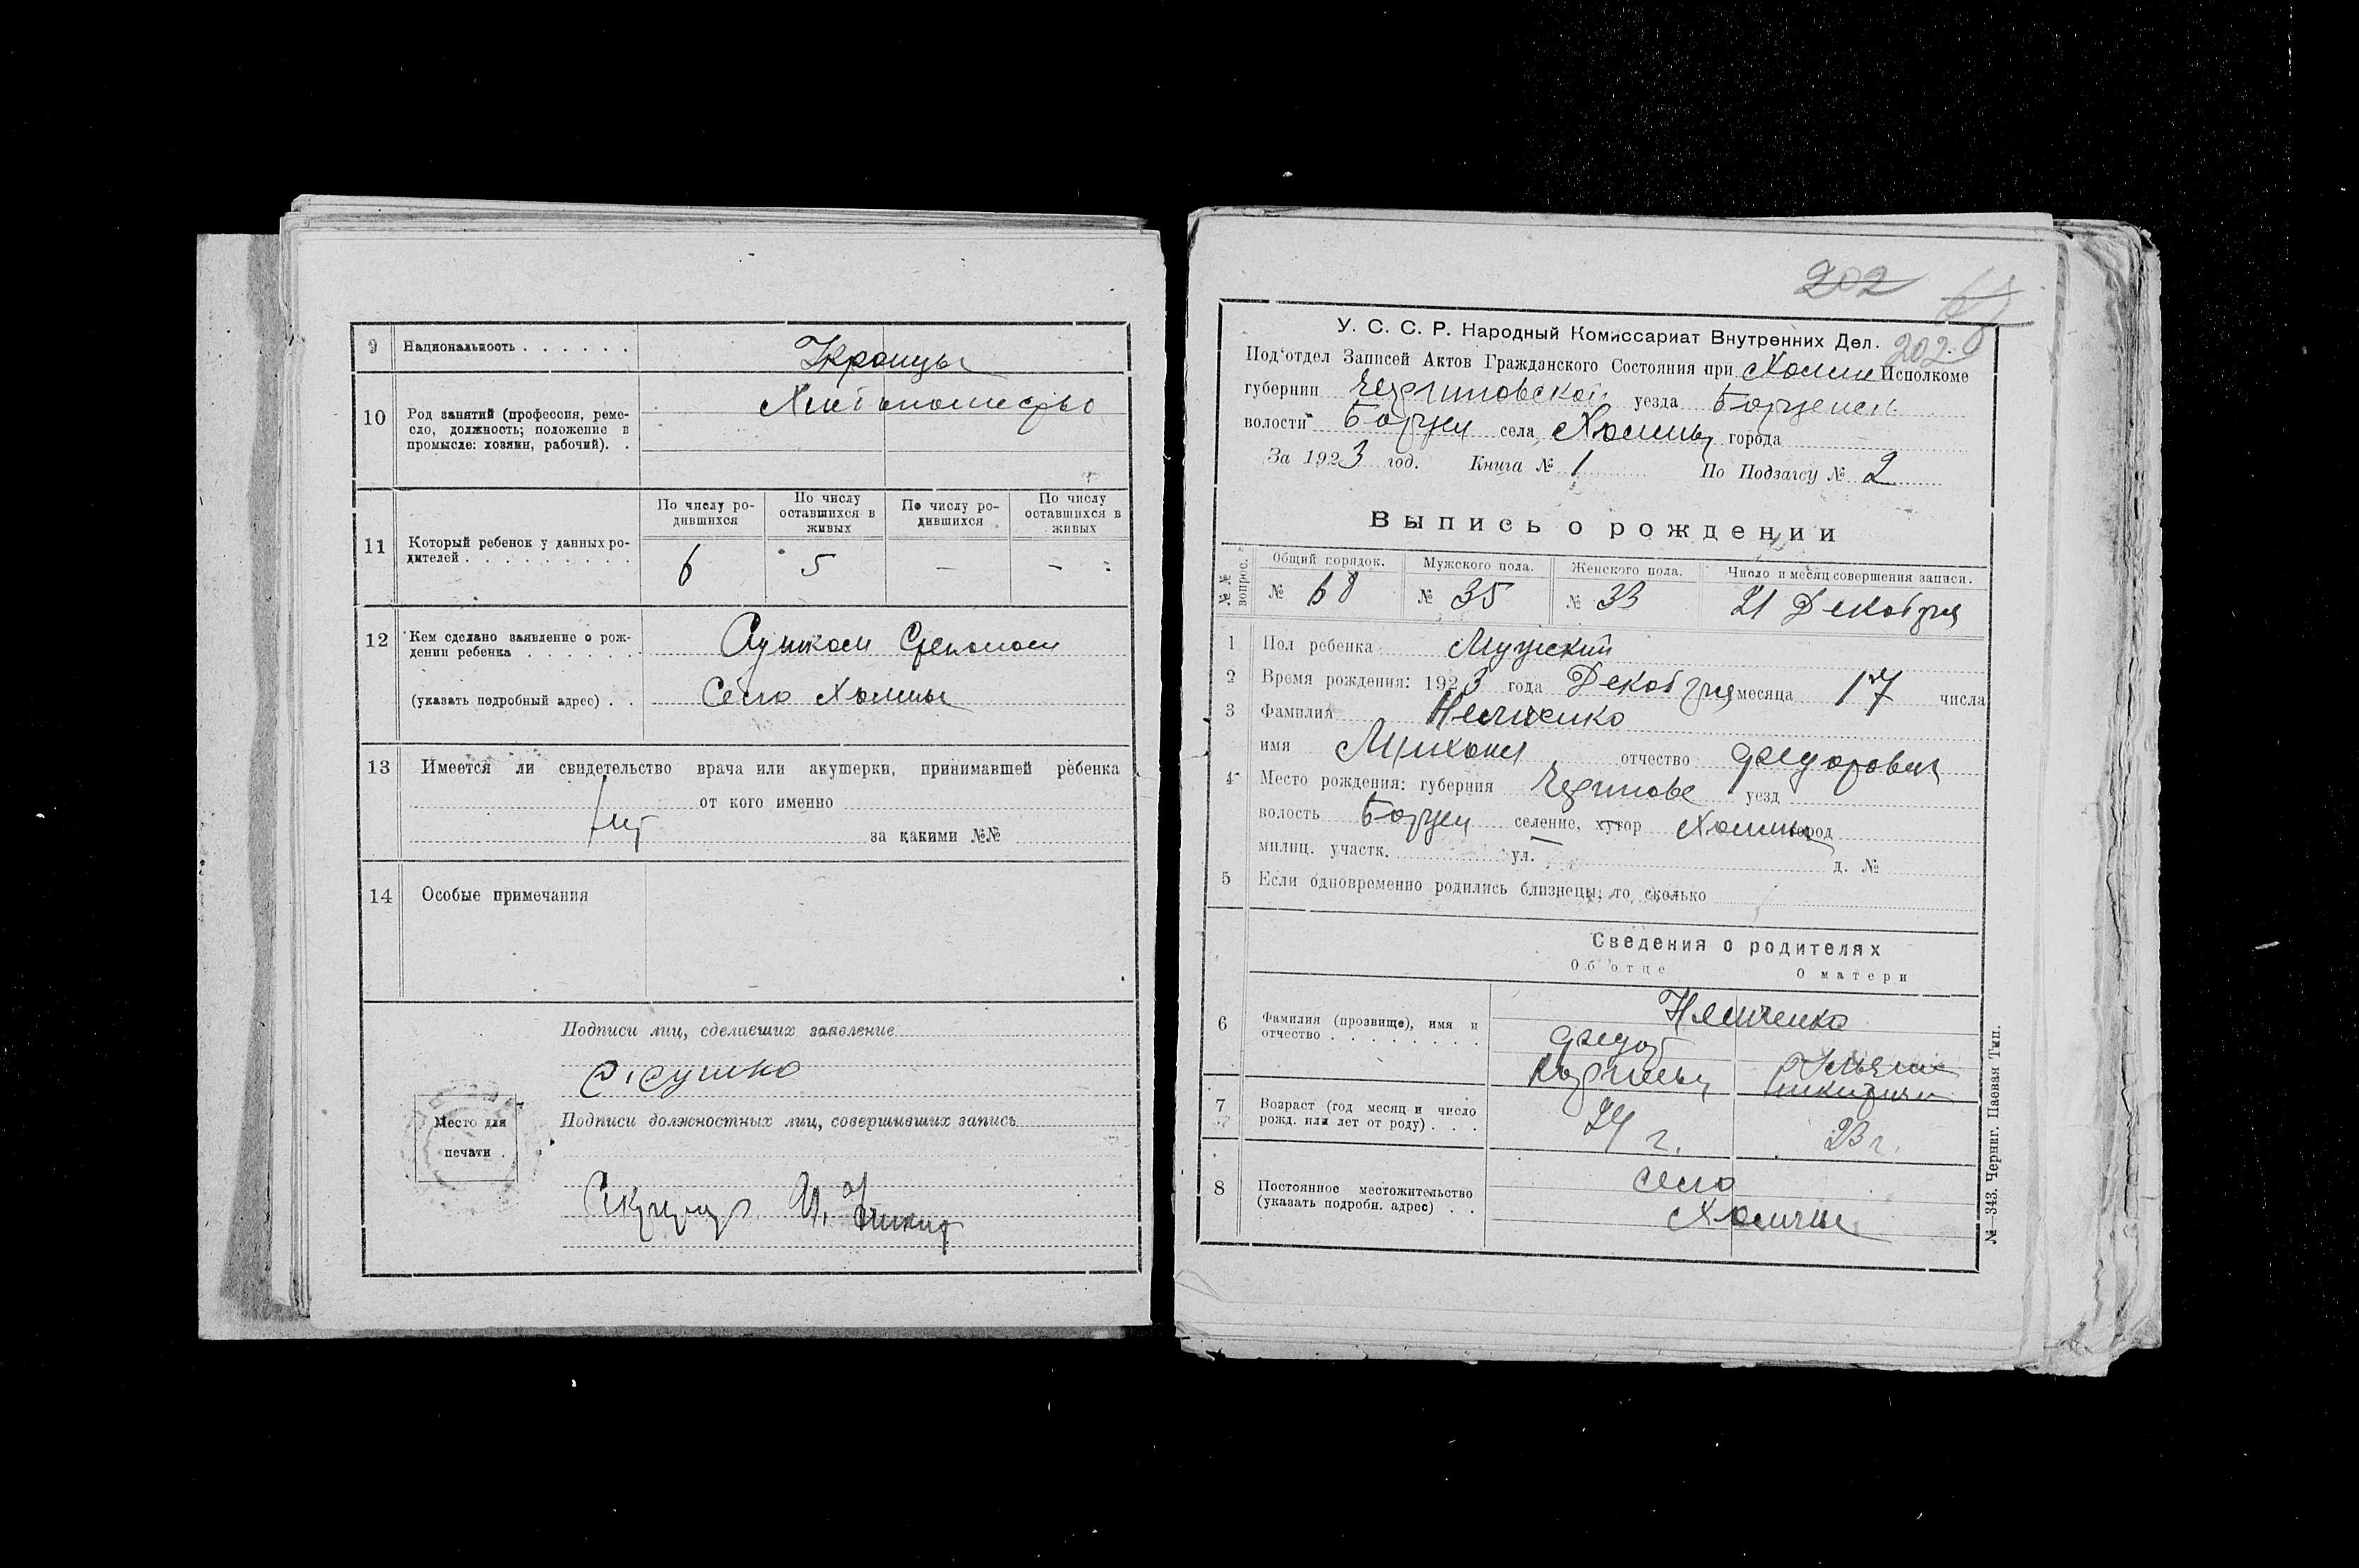 9 Национальность . . . . . .
Украинцы
10 Род занятий (профессия, реме-
сло, должность; положение в
промысле: хозяин, рабочий). .
11 Который ребенок у данных ро-
дителей . . . . . . . . .
По числу ро-
дившихся
По числу
оставшихся в
живых
По числу ро-
дившихся
По числу
оставшихся в
живых
6 5 — —
12 Кем сделано заявление о рож-
дении ребенка . . . . . . .
Сушком Степаном
(указать подробный адрес) . .
Село Холмы
13 Имеется ли свидетельство врача или акушерки, принимавшей ребенка
от кого именно
Нет за какими №№
14 Особые примечания
Подписи лиц, сделавших заявление
С. Сушко
Подписи должностных лиц, совершивших запись
Место для
печати
202
У. С. С. Р. Народный Комиссариат Внутренних Дел.
202
Под'отдел Записей Актов Гражданского Состояния при Холм Исполкоме
губернии Черниговской уезда Борзенск
волости Борзен села Холмы города
За 1923 год. Книга № 1 По Подзагсу № 2
Выпись о рождении
№№ вопрос.
Общий порядок. Мужского пола. Женского пола. Число и месяц совершения записи.
№ 68 № 35 № 33 21 Декабря
1 Пол ребенка Мужский
2 Время рождения: 1923 года Декабря месяца 17 числа
3 Фамилия
имя Михаил отчество Федорович
4 Место рождения: губерния Чернигове уезд
волость Борзен селение, хутор Холмы город
милиц. участк. ул. — д. №
5 Если одновременно родились близнецы, то сколько
Сведения о родителях
Об отце О матери
6 Фамилия (прозвище), имя и
отчество . . . . . . . .
Федор
7 Возраст (год месяц и число
рожд. или лет от роду) . . .
24 г. 23 г.
8 Постоянное местожительство
(указать подробн. адрес) . .
село
Холмы
№—343. Черниг. Паевая Тип.